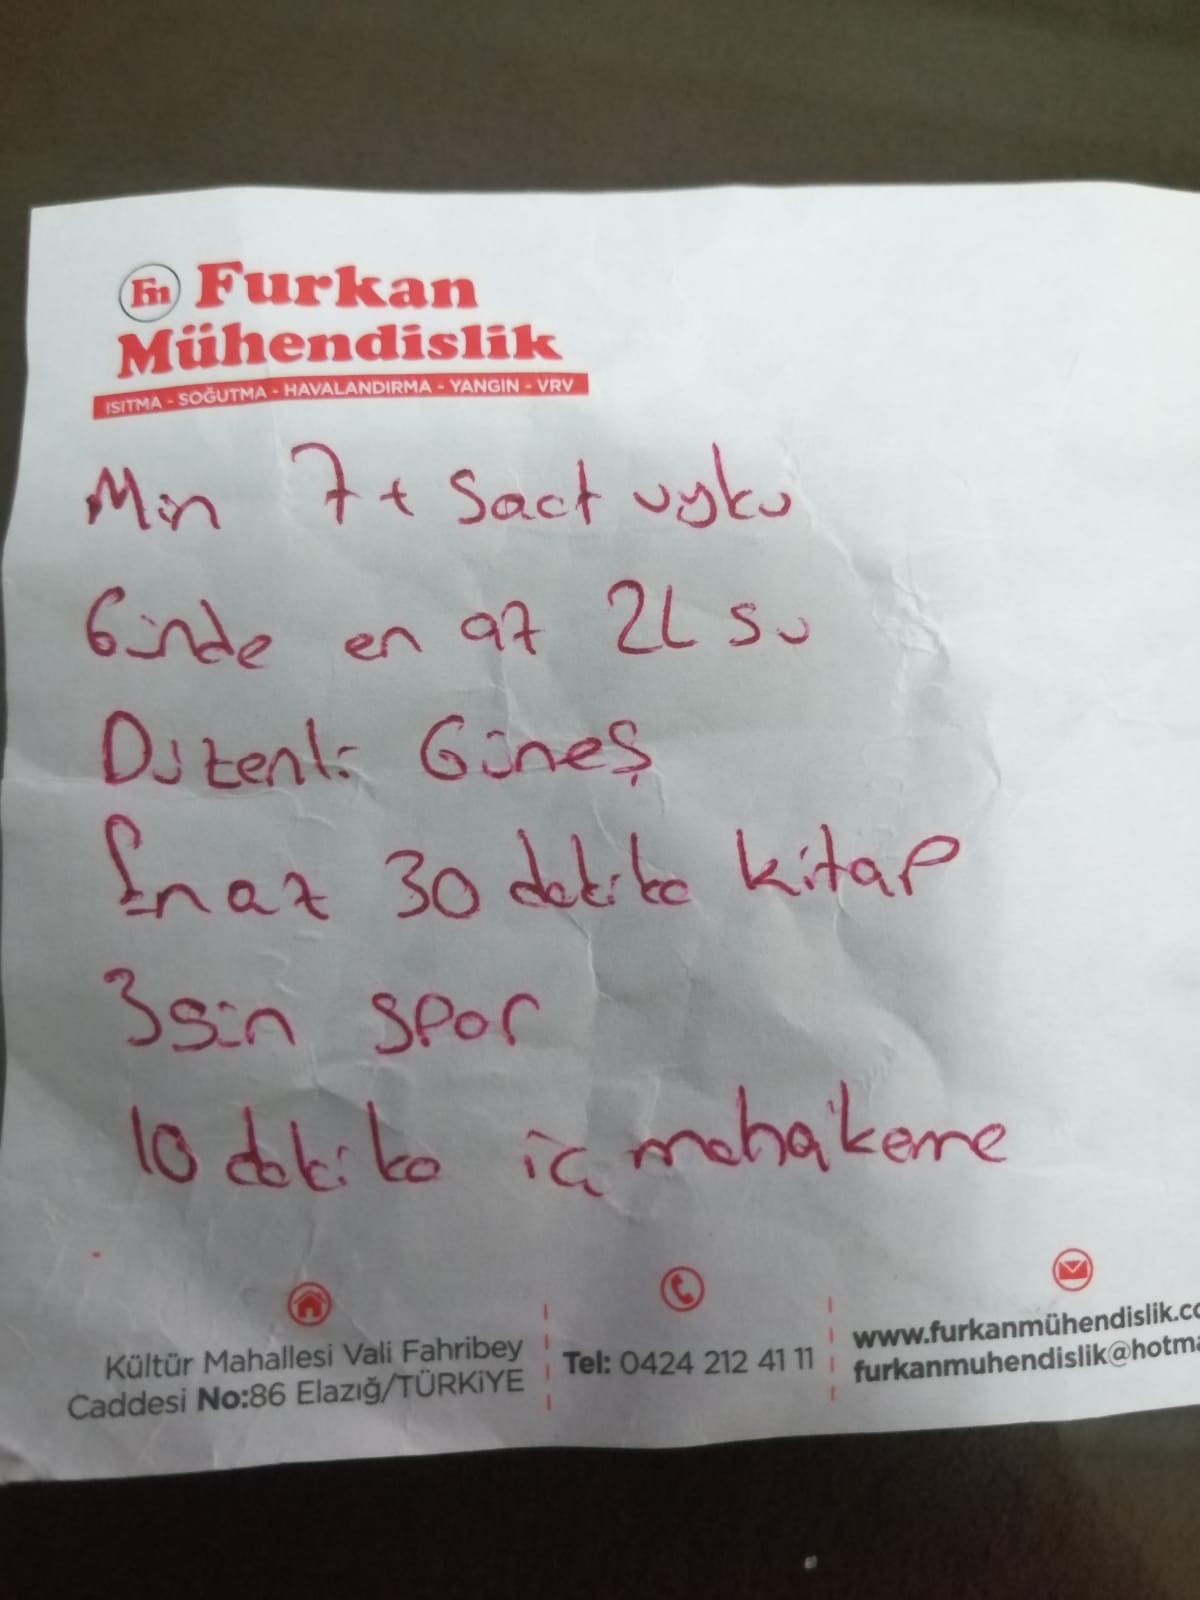 Fm Furkan
Mühendislik
ISITMA - SOĞUTMA - HAVALANDIRMA - YANGIN - VRV
Min 7+ Saat uyku
Günde en az 2L su
Düzenli Güneş
En az 30 dakika kitap
3 gün spor
10 dakika iç mahakeme
Kültür Mahallesi Vali Fahribey
Caddesi No:86 Elazığ/TÜRKİYE
Tel: 0424 212 41 11
www.furkanmühendislik.co
furkanmuhendislik@hotma